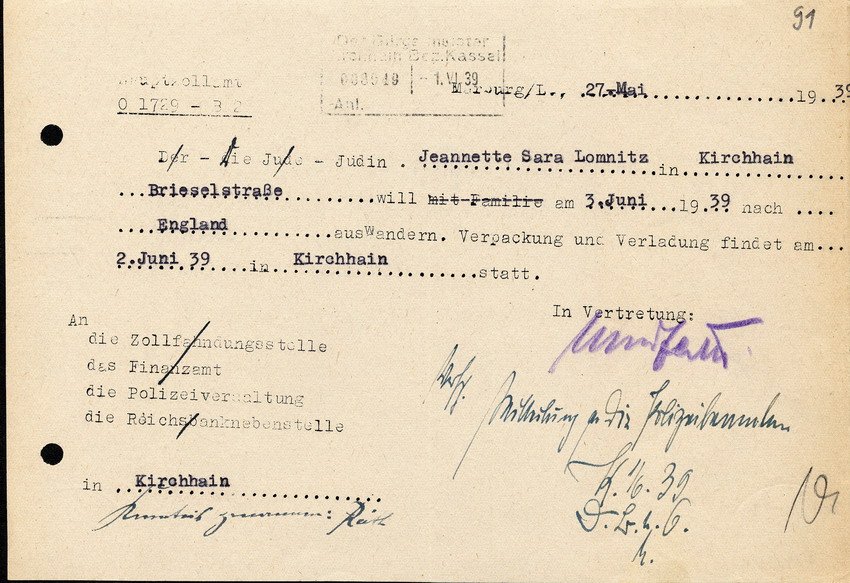 91
Der Bürgermeister
Kirchhain Bez.Kassel
- 1.VI.39
Anl.
Hauptzollamt
O 1729 - B 2
Marburg/L., 27.Mai 19 39
Der - die Jude - Jüdin . Jeannette Sara Lomnitz in Kirchhain
Brieselstraße will mit Familie am 3.Juni 19 39 nach
England auswandern. Verpackung und Verladung findet am
2.Juni 39 in Kirchhain statt.
In Vertretung:
An
die Zollfahndungsstelle
das Finanzamt
die Polizeiverwaltung
die Reichsbanknebenstelle
Mitteilung an die Polizeibeamten
K. 1/6. 39
D. B. 
in Kirchhain
Kenntnis genommen: Räth